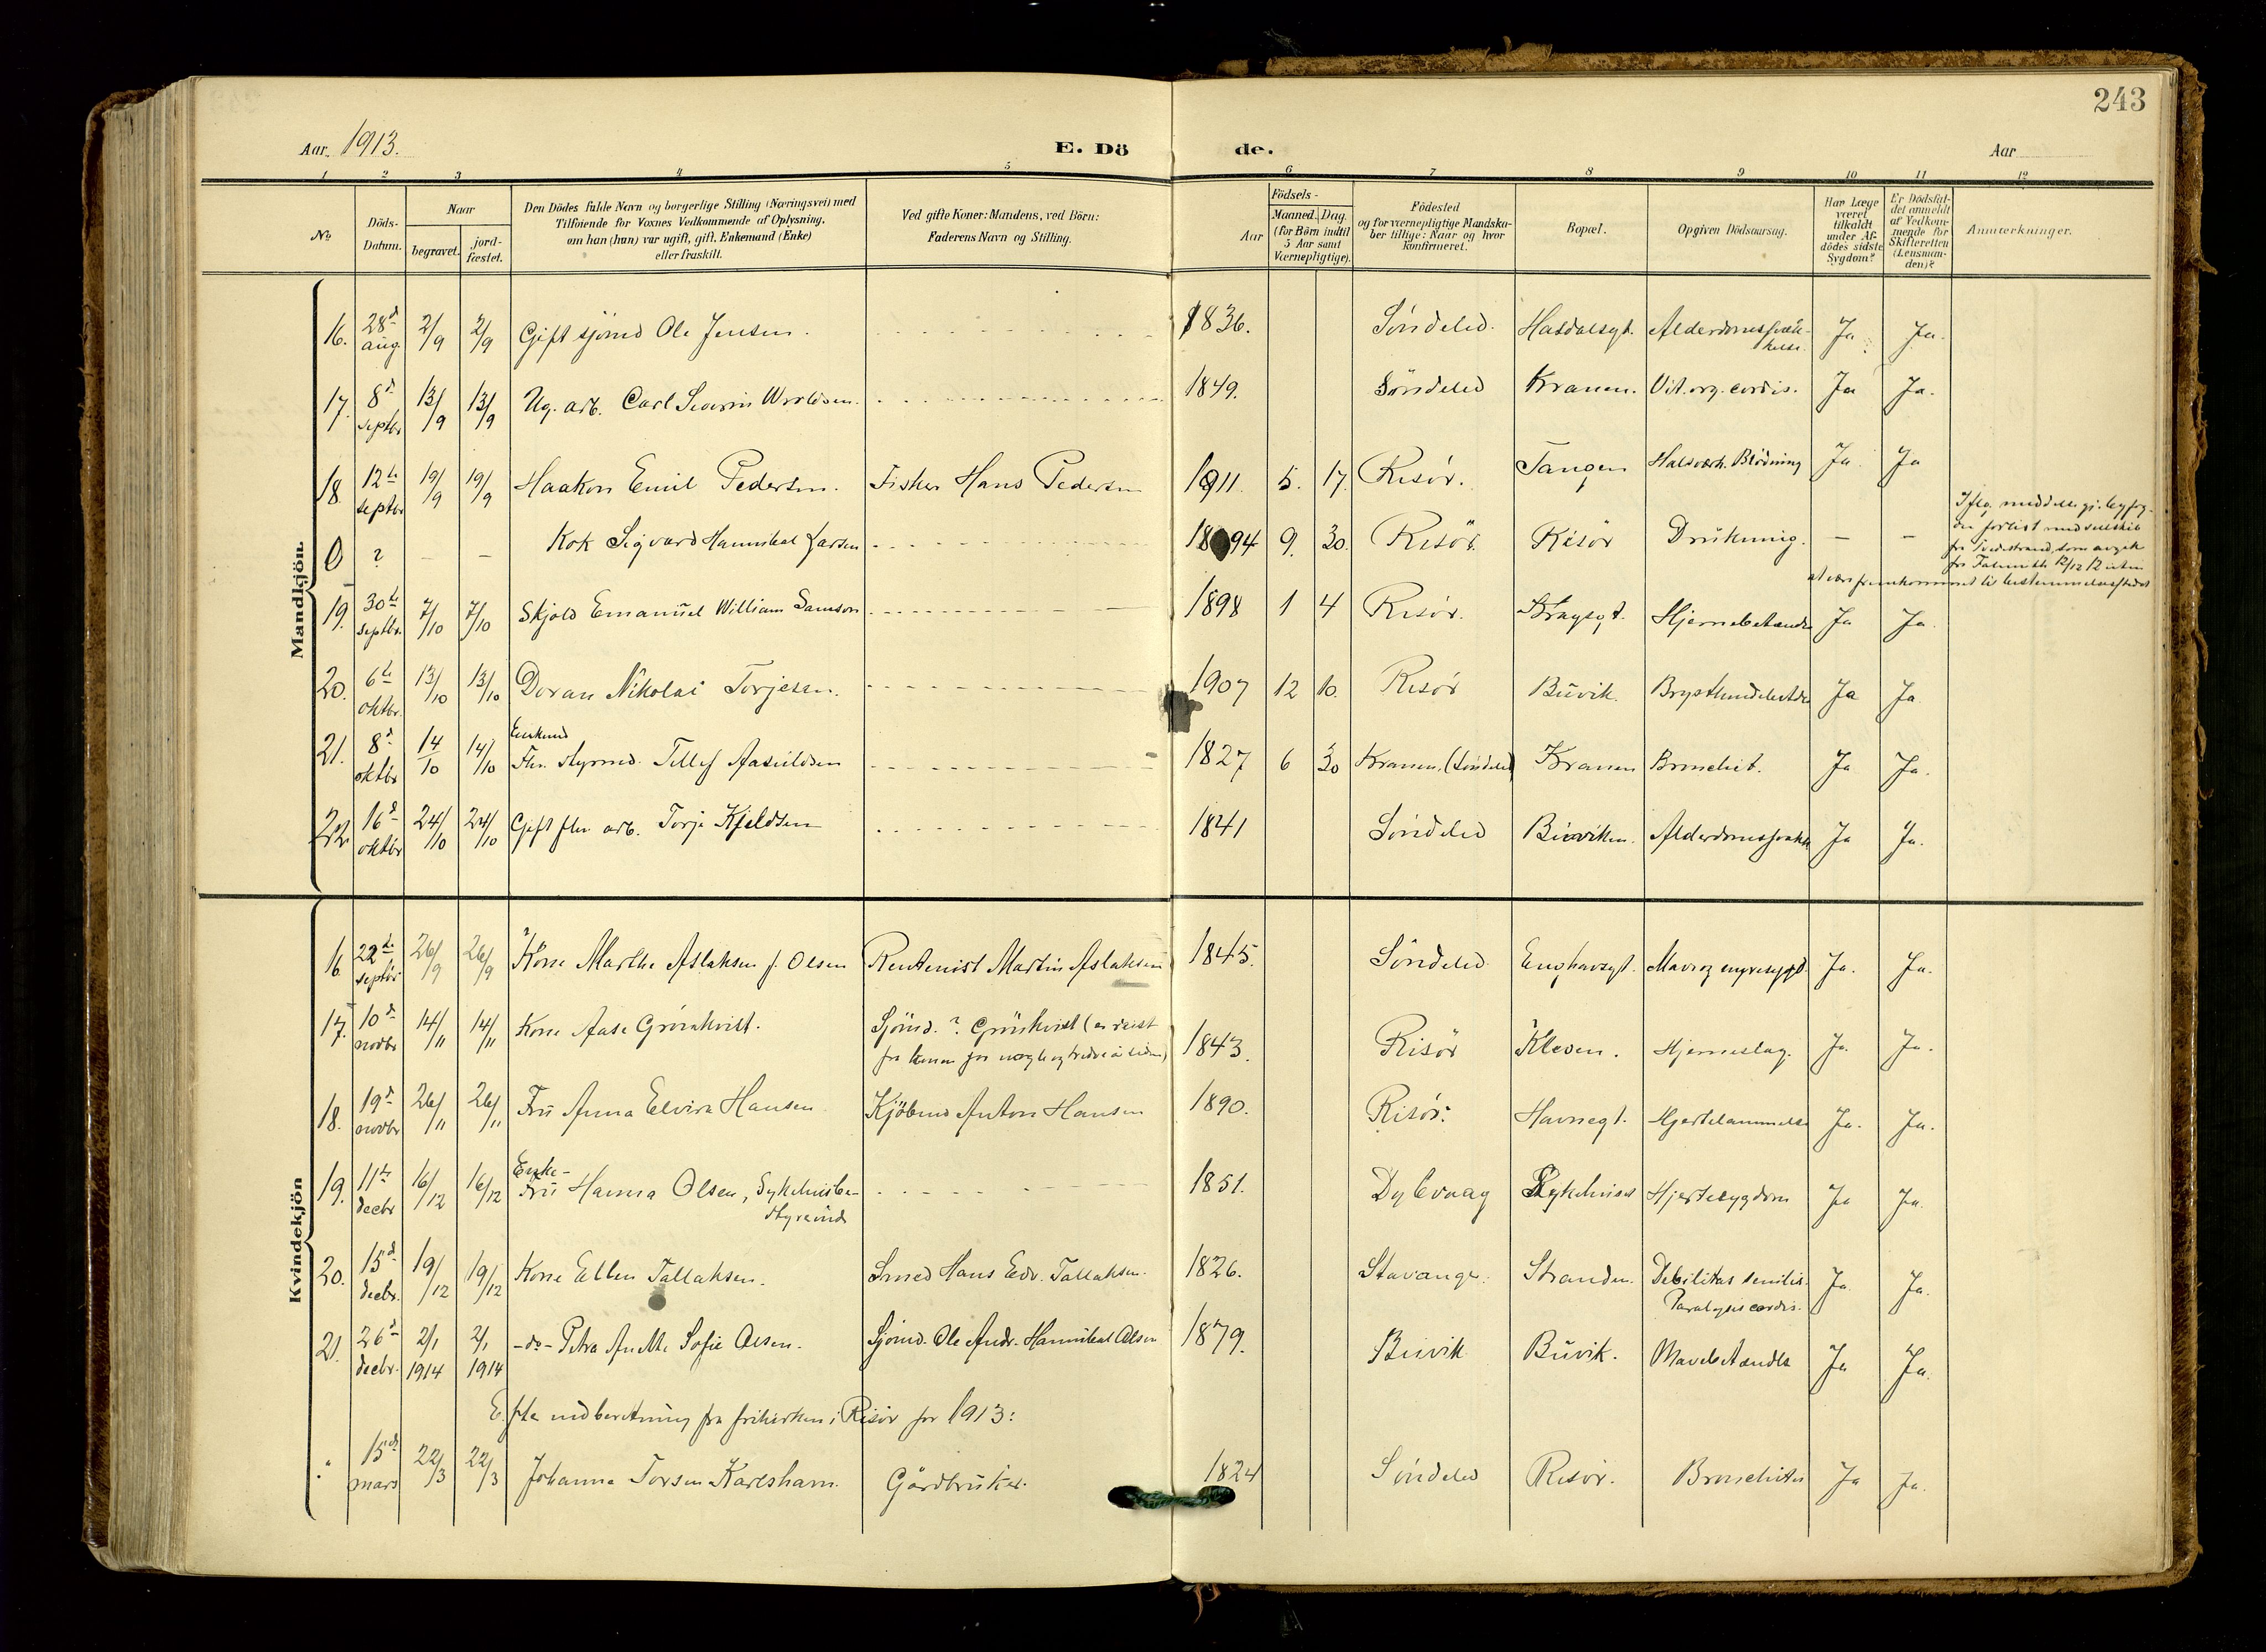 243
Aar. 1913.
E. Dö de.
Aar
1 2 3 4 5 6 7 8 9 10 11 12
No
Döds-Datum.
Naar
begravet.
jord-fæstet.
Den Dödes fulde Navn og borgerlige Stilling (Næringsvei) med
Tilföiende for Voxnes Vedkommende af Oplysning,
om han (hun) var ugift, gift, Enkemand (Enke)
eller fraskilt.
Ved gifte Koner: Mandens, ved Börn:
Faderens Navn og Stilling.
Födsels-
Aar
Maaned. Dag.
(for Börn indtil
5 Aar samt
Værnepligtige).
Födested
og for værnepligtige Mandska-
ber tillige: Naar og hvor
konfirmeret.
Bopæl.
Opgiven Dödsaarsag.
Har Læge
været
tilkaldt
under Af-
dödes sidste
Sygdom?
Er Dödsfal-
det anmeldt
af Vedkom-
mende for
Skifteretten
(Lensman-
den)?
Anmærkninger.
Mandkjön.
16. 28d aug. 2/9 2/9 Gift sjömd Ole Jensen. 1836. Söndeled. Hasdalsgt. Alderdomssvækkelse. Ja. Ja.
17. 8d septbr 13/9 13/9 Ug. arb. Carl Severin Wroldsen. 1849. Söndeled Kranen. Vit. org. cordis. Ja Ja.
18 12te septbr 19/9 19/9 Haakon Emil Pedersen. Fisker Hans Pedersen 1911. 5. 17. Risör. Tangen Halsværk. Blödning Ja. Ja
0 ? — — Kok Sigvard Hannibal Larsen 1894 9. 30. Risör. Risör Drukning. — —
fra Tvedestrand, som avgik
fra Falmouth 12/12 12 uten
at være fremkommet til bestemmelsesstedet
19. 30te septbr. 7/10 7/10 Skjold Emanuel William Samson 1898 1 4 Risör. Kragsgt. Hjernebetændn Ja Ja.
20. 6te oktbr. 13/10 13/10 Doran Nikolai Torjesen. 1907 12 10. Risör Buvik. Brysthindebetdn Ja Ja
21. 8d oktbr 14/10 14/10 Enkemd Fhv. styrmd. Tellef Aasuldsen 1827 6 30 Kranen. (Söndeled) Kranen Bronchit. Ja Ja.
22. 16d oktbr 24/10 24/10 Gift fhv arb. Torje Kjeldsen 1841 Söndeled Buviken. Alderdomssvakh Ja Ja.
Kvindekjön
16 22de septbr 26/9 26/9 Kone Marthe Aslaksen f. Olsen Rentenist Martin Aslaksen 1845. Söndeled Enghavsgt. Mave og nyresygd. Ja. Ja.
17. 10d novbr 14/11 14/11 Kone Aase Grönkvist. Sjömd. ? Grönkvist (er reist
fra konen for nogle og tredve år siden) 1843. Risör Kleven. Hjerneslag. Ja Ja.
18. 19d novbr 26/11 26/11 Fru Anna Elvira Hansen Kjöbmd Anton Hansen 1890. Risör. Havnegt. Hjertelammelse Ja. Ja.
19. 11te decbr 16/12 16/12 Enke-Fru Hanna Olsen, Sykehusbe-
styrerinde 1851. Dybvaag Sykehuset Hjertesygdom Ja Ja.
20. 15d decbr. 19/12 19/12 Kone Ellen Tallaksen. Smed Hans Edv. Tallaksen. 1826. Stavanger. Stranden. Debilitas senilis.
Paralysis cordis. Ja. Ja.
21. 26d decbr. 2/1 1914 2/1 1914 -do- Petra Anette Sofie Olsen. Sjömd. Ole Andr. Hannibal Olsen 1879. Buvik Buvik. Mavebetændls Ja Ja.
Efter indberetning fra frikirken i Risör for 1913:
" 15de mars 22/3 22/3 Johanne Torsen Karlsham. Gårdbruker. 1824 Söndeled Risör. Bronchites Ja Ja.